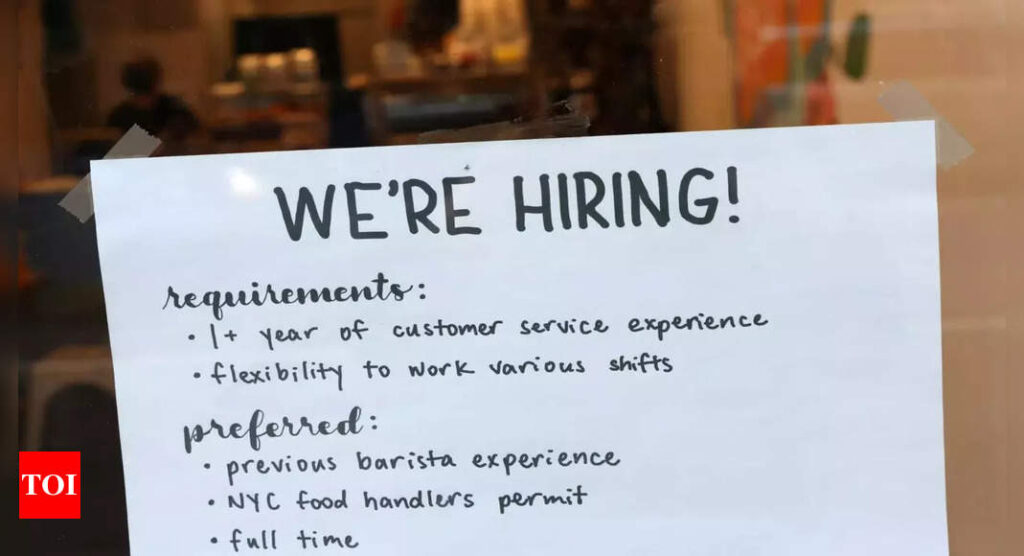 WE'RE HIRING!
requirements:
• 1+ year of customer service experience
• flexibility to work various shifts
preferred:
• previous barista experience
• NYC food handlers permit
• full time
TOI